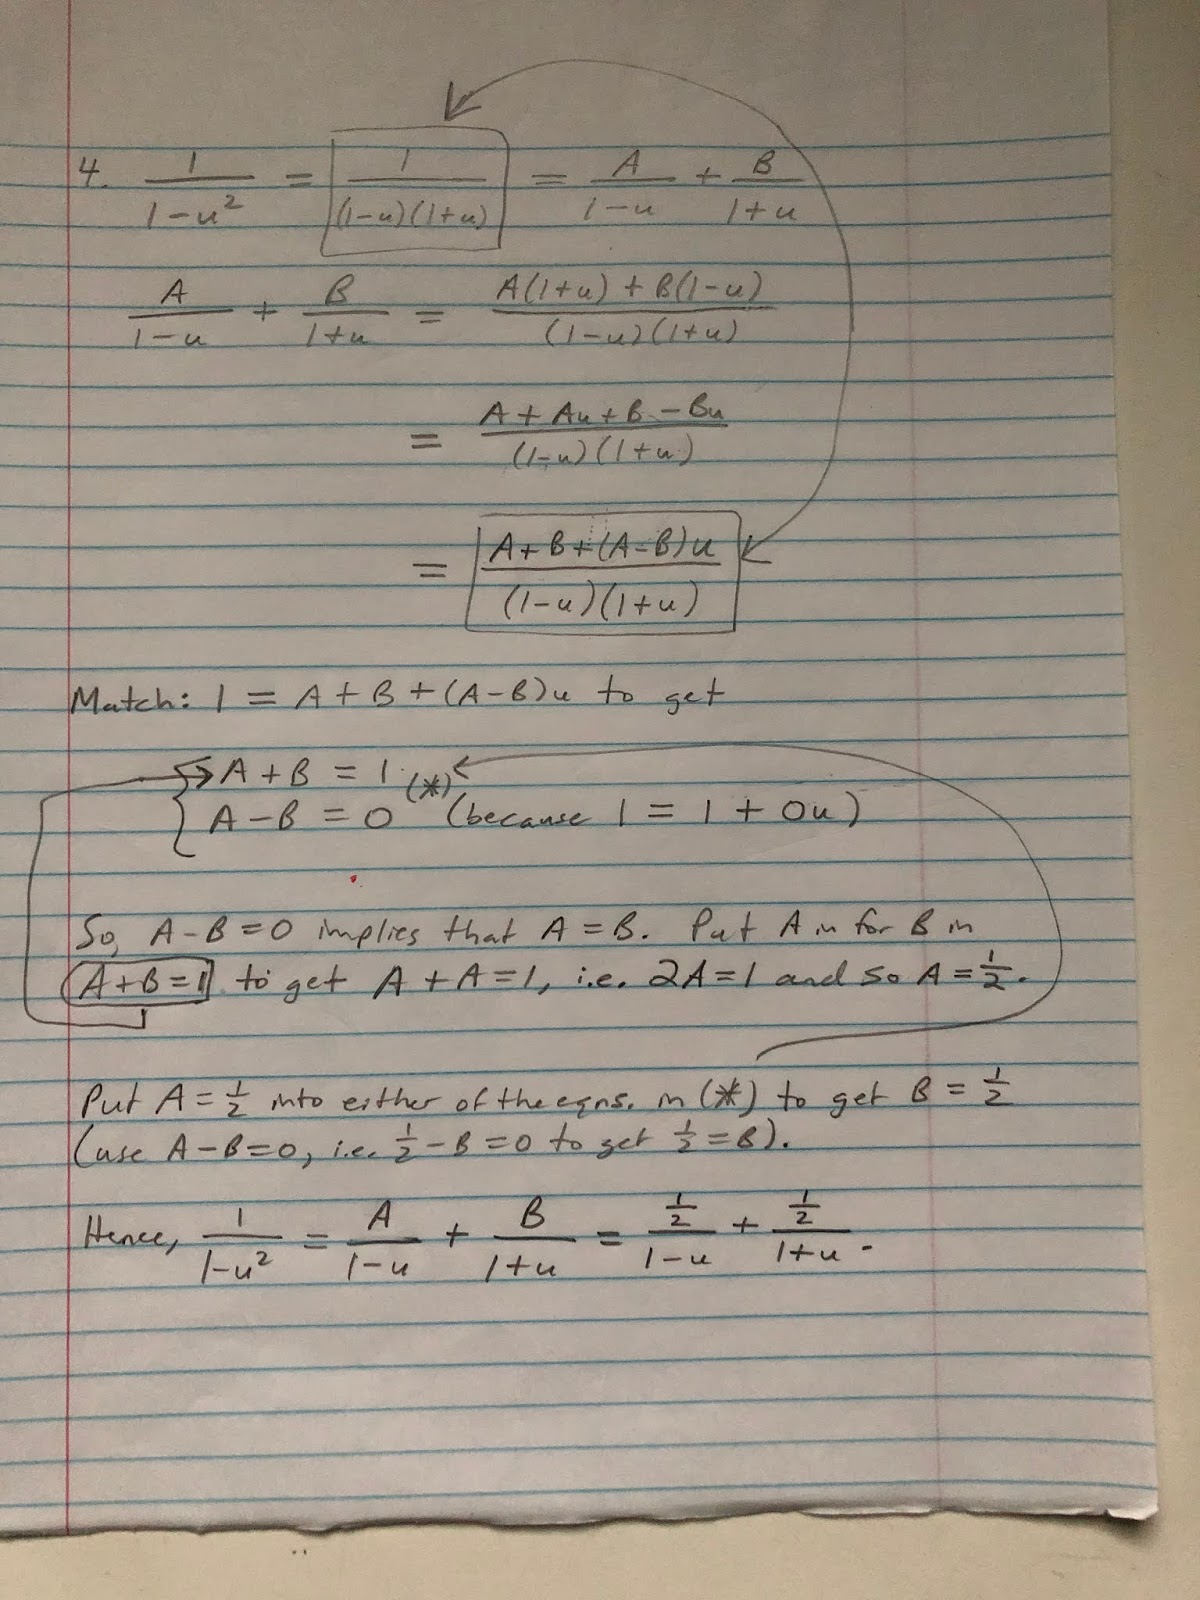 4. 1/(1-u²) = 1/((1-u)(1+u)) = A/(1-u) + B/(1+u)
A/(1-u) + B/(1+u) = (A(1+u) + B(1-u))/((1-u)(1+u))
= (A + Au + B - Bu)/((1-u)(1+u))
= (A + B + (A-B)u)/((1-u)(1+u))
Match: 1 = A + B + (A-B)u to get
A + B = 1 (*)
A - B = 0 (because 1 = 1 + 0u)
So, A - B = 0 implies that A = B. Put A in for B in
A+B=1 to get A + A = 1, i.e. 2A = 1 and so A = 1/2.
Put A = 1/2 into either of the eqns. in (*) to get B = 1/2
(use A - B = 0, i.e. 1/2 - B = 0 to get 1/2 = B).
Hence, 1/(1-u²) = A/(1-u) + B/(1+u) = (1/2)/(1-u) + (1/2)/(1+u).